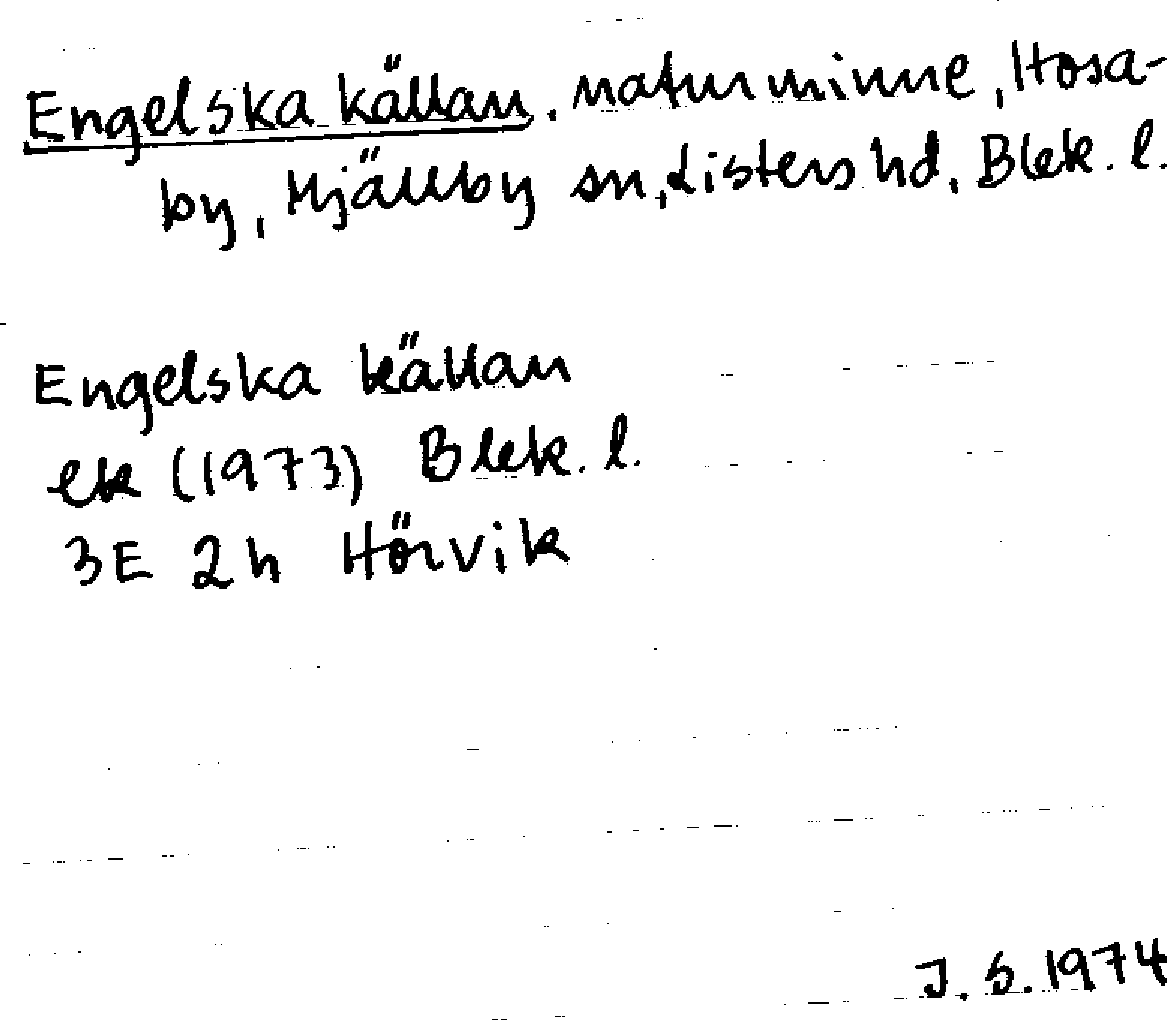 Engelska källan, naturminne, Hosa-
by, Mjällby sn, Listers hd, Blek. l.
Engelska källan
ek (1973) Blek. l.
3E 2h Hörvik
J. S. 1974